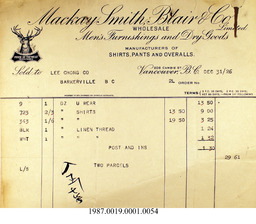 Mackay Smith, Blair & Co.
Limited.
WHOLESALE
Men's Furnishings and Dry Goods
MANUFACTURERS OF
SHIRTS, PANTS AND OVERALLS.
Sold to LEE CHONG CO
BARKERVILLE B C
Vancouver, B.C. DEC 31/26
ORDER NO.
TERMS
9 1 DZ U WEAR 13 50
325 2/3 " SHIRTS 13 50 9 00
" 9 50
BLK 1 " LINEN THREAD 1 24
WHT 1 " " 1 52
POST AND INS
29 61
L/R TWO PARCELS
1987.0019.0001.0054